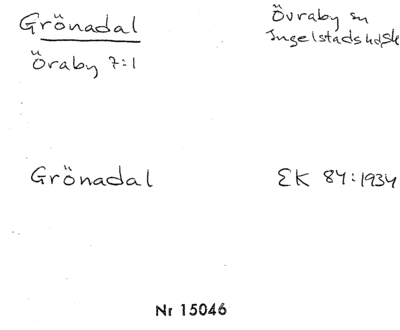 Grönadal
Övraby sn
Ingelstads hd, Sk
Öraby 7:1
Grönadal
EK 84:1934
Nr 15046